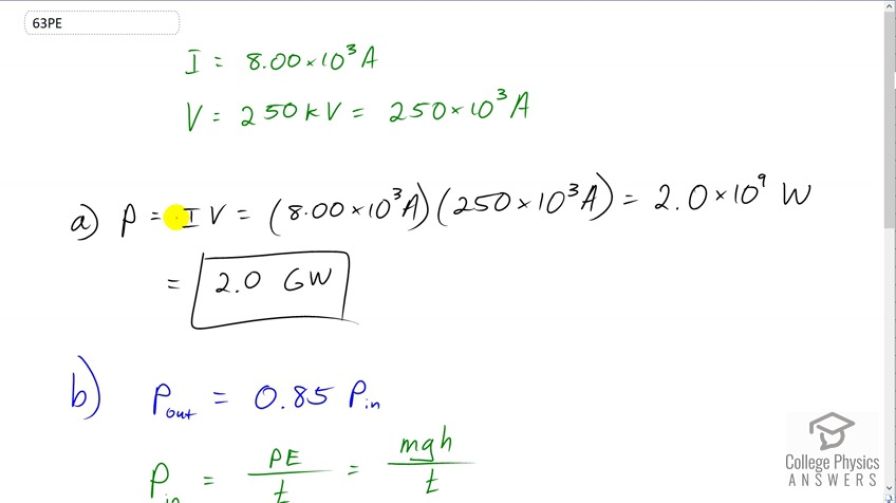 63PE
I = 8.00 × 10³ A
V = 250 kV = 250 × 10³ A
a) P = IV = (8.00 × 10³ A)(250 × 10³ A) = 2.0 × 10⁹ W
= 2.0 GW
b) P_out = 0.85 P_in
P_in = PE/t = mgh/t
College Physics
ANSWERS